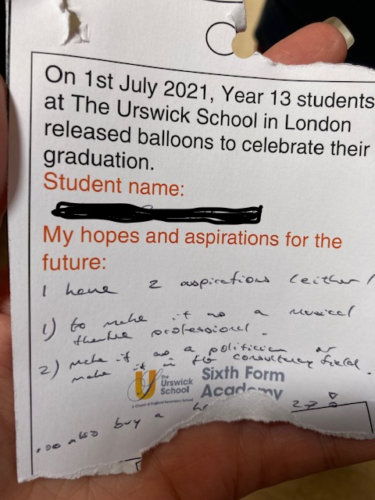 On 1st July 2021, Year 13 students
at The Urswick School in London
released balloons to celebrate their
graduation.
Student name:
My hopes and aspirations for the
future:
I have 2 aspirations (either /
1) to make it as a musical
theatre professional.
2) make it as a politician or
make it in the consultancy field.
The
Urswick
School
Sixth Form
Academy
also buy a